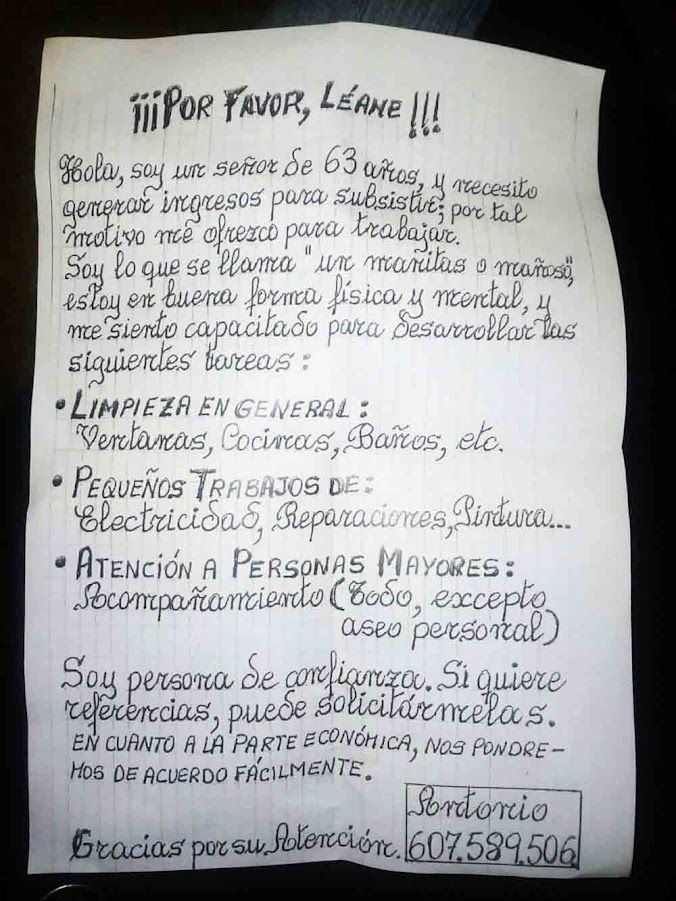 ¡¡¡POR FAVOR, LÉAME!!!
Hola, soy un señor de 63 años, y necesito
generar ingresos para subsistir; por tal
motivo me ofrezco para trabajar.
Soy lo que se llama "un manitas o mañoso",
estoy en buena forma física y mental, y
me siento capacitado para desarrollar las
siguientes tareas:
• LIMPIEZA EN GENERAL:
Ventanas, Cocinas, Baños, etc.
• PEQUEÑOS TRABAJOS DE:
Electricidad, Reparaciones, Pintura...
• ATENCIÓN A PERSONAS MAYORES:
Acompañamiento (Todo, excepto
aseo personal)
Soy persona de confianza. Si quiere
referencias, puede solicitármelas.
EN CUANTO A LA PARTE ECONÓMICA, NOS PONDRE-
MOS DE ACUERDO FÁCILMENTE.
Gracias por su Atención.
Antonio
607.589.506